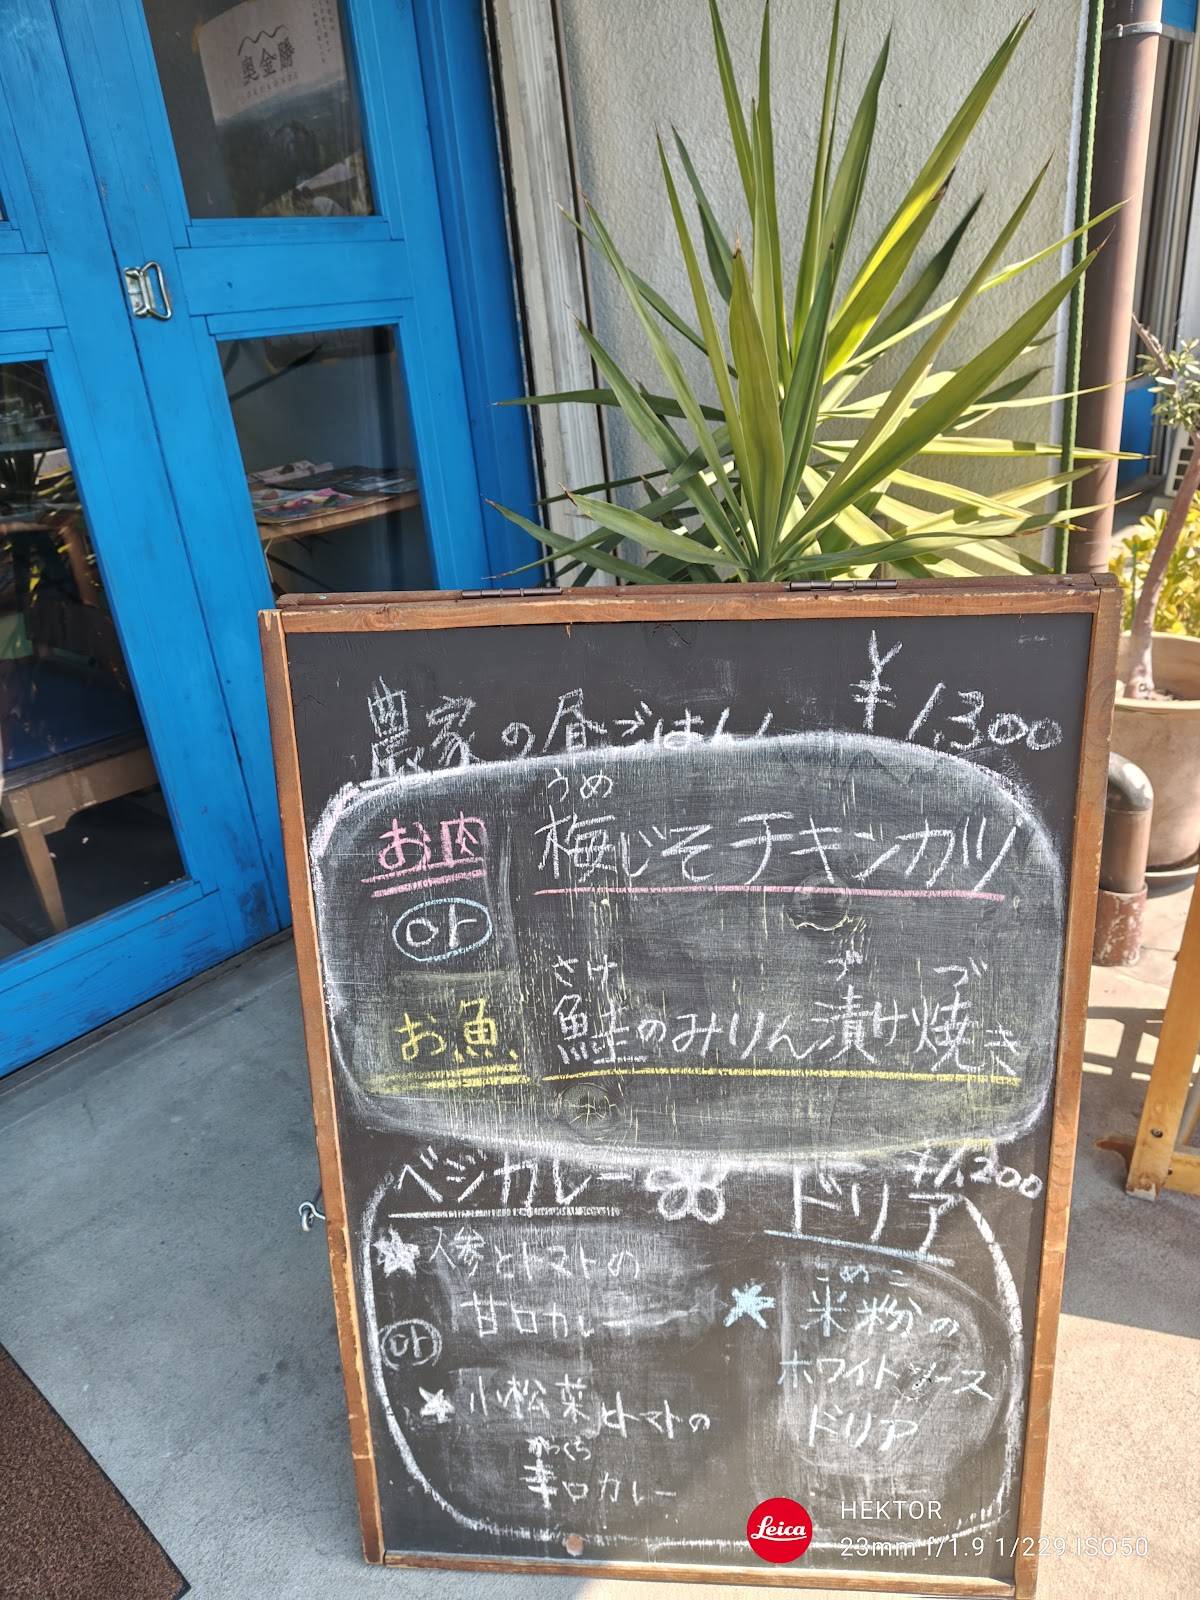 奥金勝
農家の昼ごはん ¥1,300
うめ
お肉 梅じそチキンカツ
or
さけ づ
お魚 鮭のみりん漬け焼き
ベジカレー ドリア ¥1,200
人参とトマトの
甘口カレー
or
小松菜とトマトの
からくち
辛口カレー
こめこ
米粉の
ホワイトソース
ドリア
Leica
HEKTOR
23mm f/1.9 1/229 ISO50